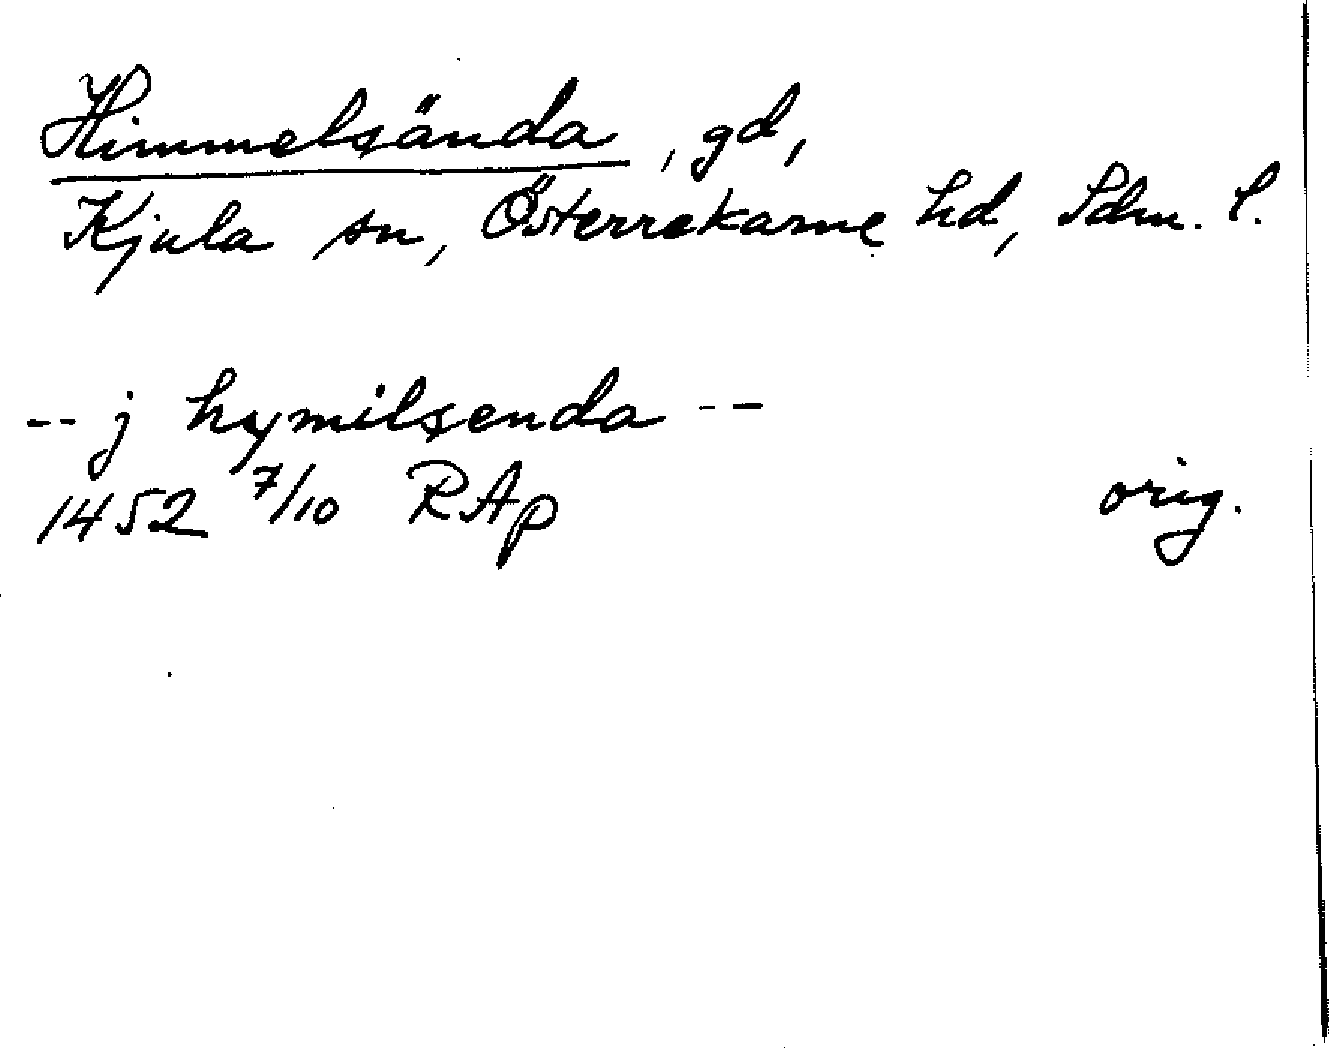 Himmelsända, gd,
Kjula sn, Österrekarne hd, Sdm. l.
-- j hymilsenda --
1452 7/10 RAp orig.